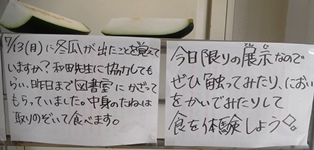 9/13(月)に冬瓜が出たことを覚えて
いますか？和田先生に協力しても
らい、昨日まで図書室にかざって
もらっていました。中身のたねは
取りのぞいて食べます。
今日限りの展示なので
ぜひ触ってみたり、におい
をかいでみたりして
食を体験しよう◇。